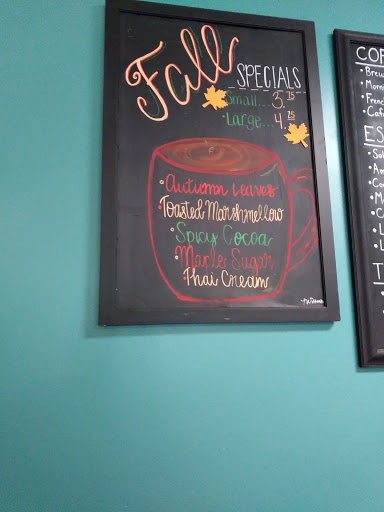 Fall
SPECIALS
Small... 3.75
Large... 4.25
Autumn Leaves
Toasted Marshmellow
Spicy Cocoa
Maple Sugar
Thai Cream
COF
• Brew
• Morn
• Frenc
• Cafe
ES